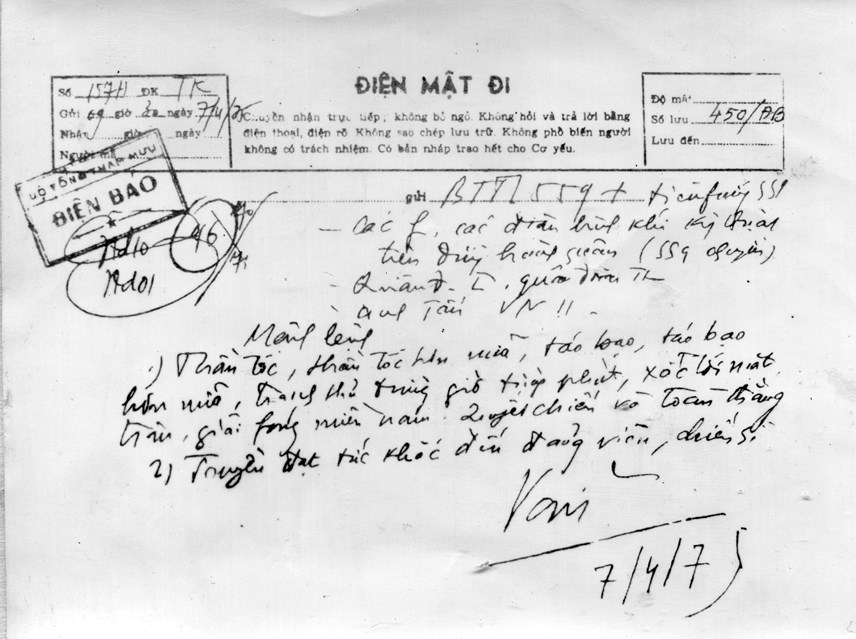 ĐIỆN MẬT ĐI
Số 157H ĐK TK
Gửi giờ ngày 7/4/75
Nhận giờ ngày
Người mã
Chuyển nhận trực tiếp, không bỏ ngỏ. Không hỏi và trả lời bằng
điện thoại, điện rõ. Không sao chép lưu trữ. Không phổ biến người
không có trách nhiệm. Có bản nháp trao hết cho Cơ yếu.
Độ mật
Số lưu 450/ĐB
Lưu đến
BỘ TỔNG THAM MƯU
ĐIỆN BÁO
gửi BTTL 559 +
- Các f, các đơn binh khí kỹ thuật
trên đường hành quân (559 chuyển)
- Quân đ. I, quân đoàn
- anh Tấn
Mệnh lệnh
1) Thần tốc, thần tốc hơn nữa, táo bạo, táo bạo
hơn nữa, tranh thủ từng giờ từng phút, xốc tới mặt
trận, giải fóng miền nam. Quyết chiến và toàn thắng
2) Truyền đạt tức khắc đến đảng viên, chiến sĩ
Văn
7/4/75